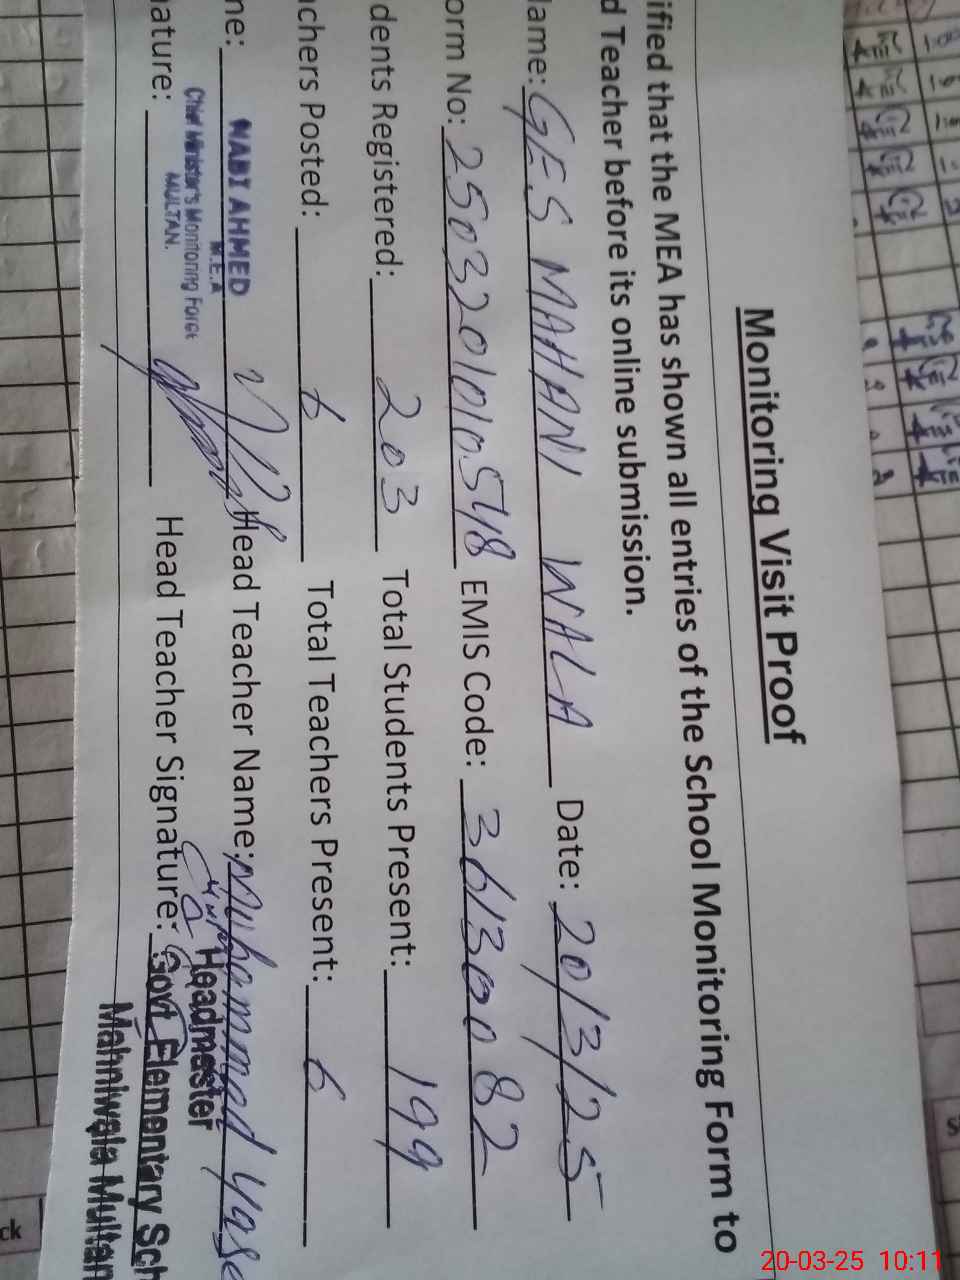 Monitoring Visit Proof
ified that the MEA has shown all entries of the School Monitoring Form to
d Teacher before its online submission.
lame: GES MAHANI WALA Date: 20/3/25
orm No: 25032010101054 8 EMIS Code: 36130082
dents Registered: 203 Total Students Present: 199
chers Posted: 6 Total Teachers Present: 6
ne: NABI AHMED Head Teacher Name: Muhammad Yase
M.E.A
Chief Minister's Monitoring Force
MULTAN.
Headmaster
ature: Head Teacher Signature: Govt Elementary Sch
Mahniwala Multan
20-03-25 10:11